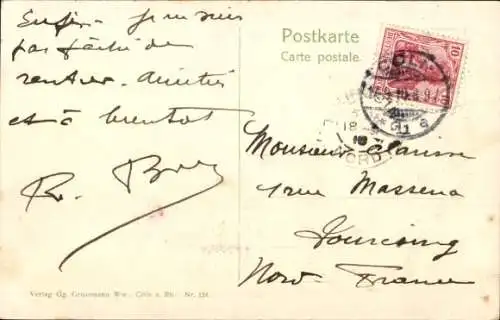 Enfin - je ne suis
pas fâché de
rentrer. Amitiés
et à bientôt
Postkarte
Carte postale.
10
CÖLN
Monsieur
rue Massena
Tourcoing
Nord. France
NORD
Verlag Gg. Geuermann Wwe., Cöln a. Rh. Nr. 124